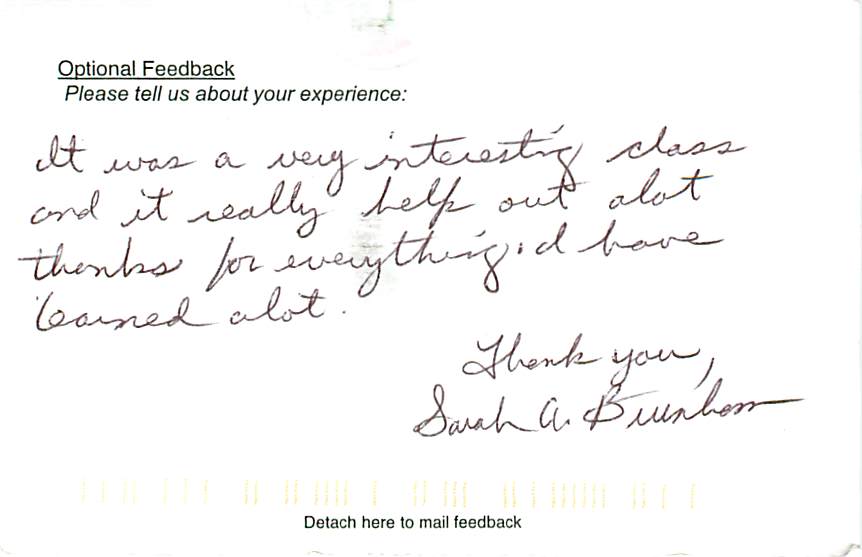 Optional Feedback
Please tell us about your experience:
It was a very interesting class
and it really help out alot
thanks for everything. I have
learned alot.
Thank you,
Sarah A.
Detach here to mail feedback